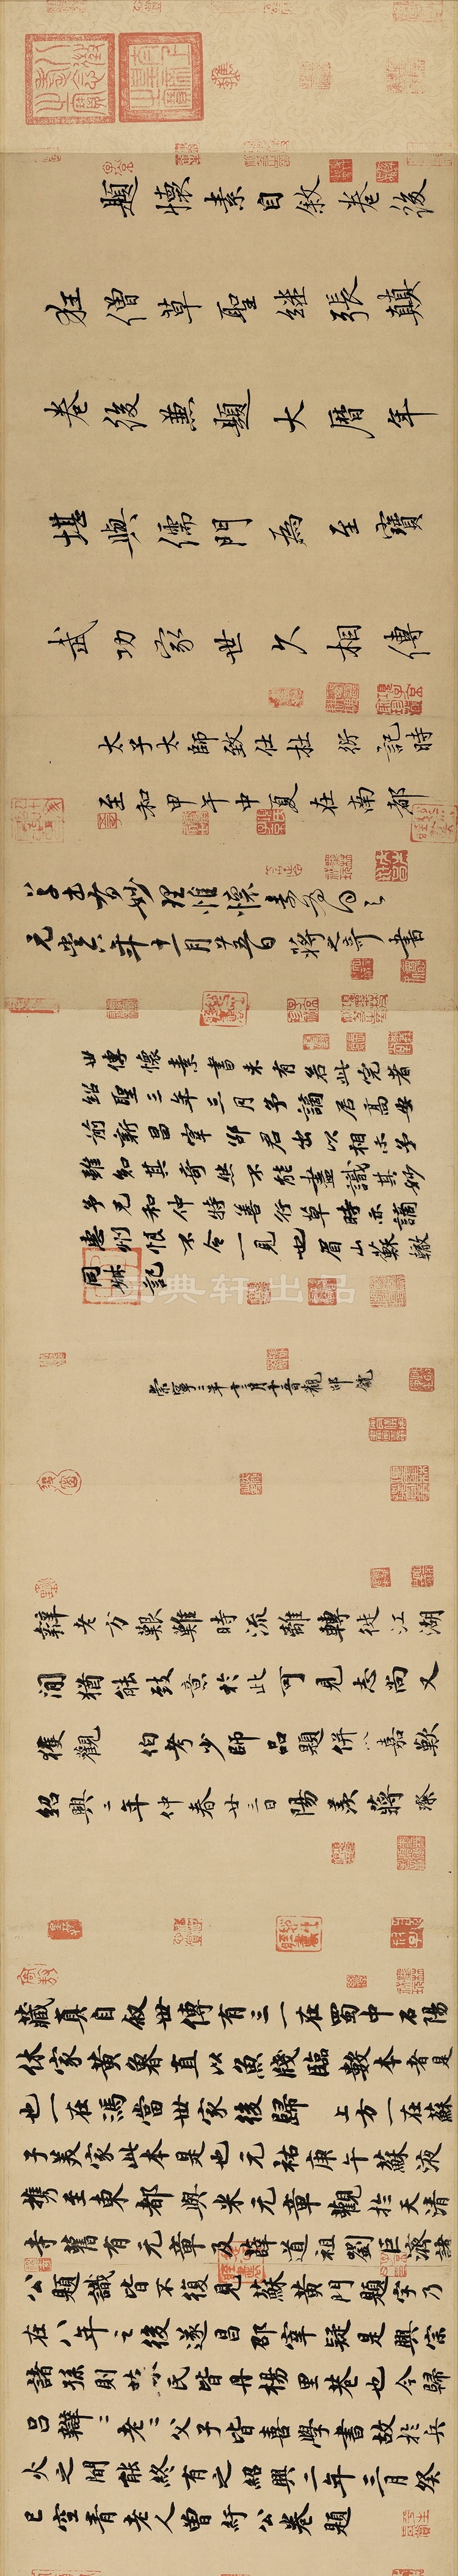 題懷素自敘卷後
狂僧草聖繼張顛
卷後兼題大曆年
堪與儒門為至寶
武功家世久相傳
太子太師致仕杜衍記時
至和甲午中夏在南都
草書有妙理惟懷素為得之
元豐六年十二月廿五日蔣之奇書
世傳懷素書未有若此完者
紹聖三年三月予謫居高安
前新昌宰邵君出以相示予
雖知其奇然不能盡識其妙
予兄和仲特善行草時亦謫
惠州恨不令一見也眉山蘇轍
同叔記
典轩出品
崇寧二年十二月十五日觀邵
辯老方艱難時流離轉徙江湖
間猶能致意於此可見志尚又
獲觀 伯考少師品題併以嘉歎
紹興二年仲春廿三日陽羨蔣璨
藏真自敘世傳有三一在蜀中石陽
休家黃魯直以魚牋臨數本者是
也一在馮當世家後歸 上方一在蘇
子美家此本是也元祐庚午蘇液
攜至東都與米元章觀於天清
寺舊有元章及薛道祖劉巨濟諸
公題識皆不復見蘇黃門題字乃
在八年之後遂昌邵宰疑是興宗
諸孫則氏皆丹楊里巷也今歸
呂辯〻老〻父子皆喜學書故於兵
火之間能終有之紹興二年三月癸
巳空青老人曾紆公卷題